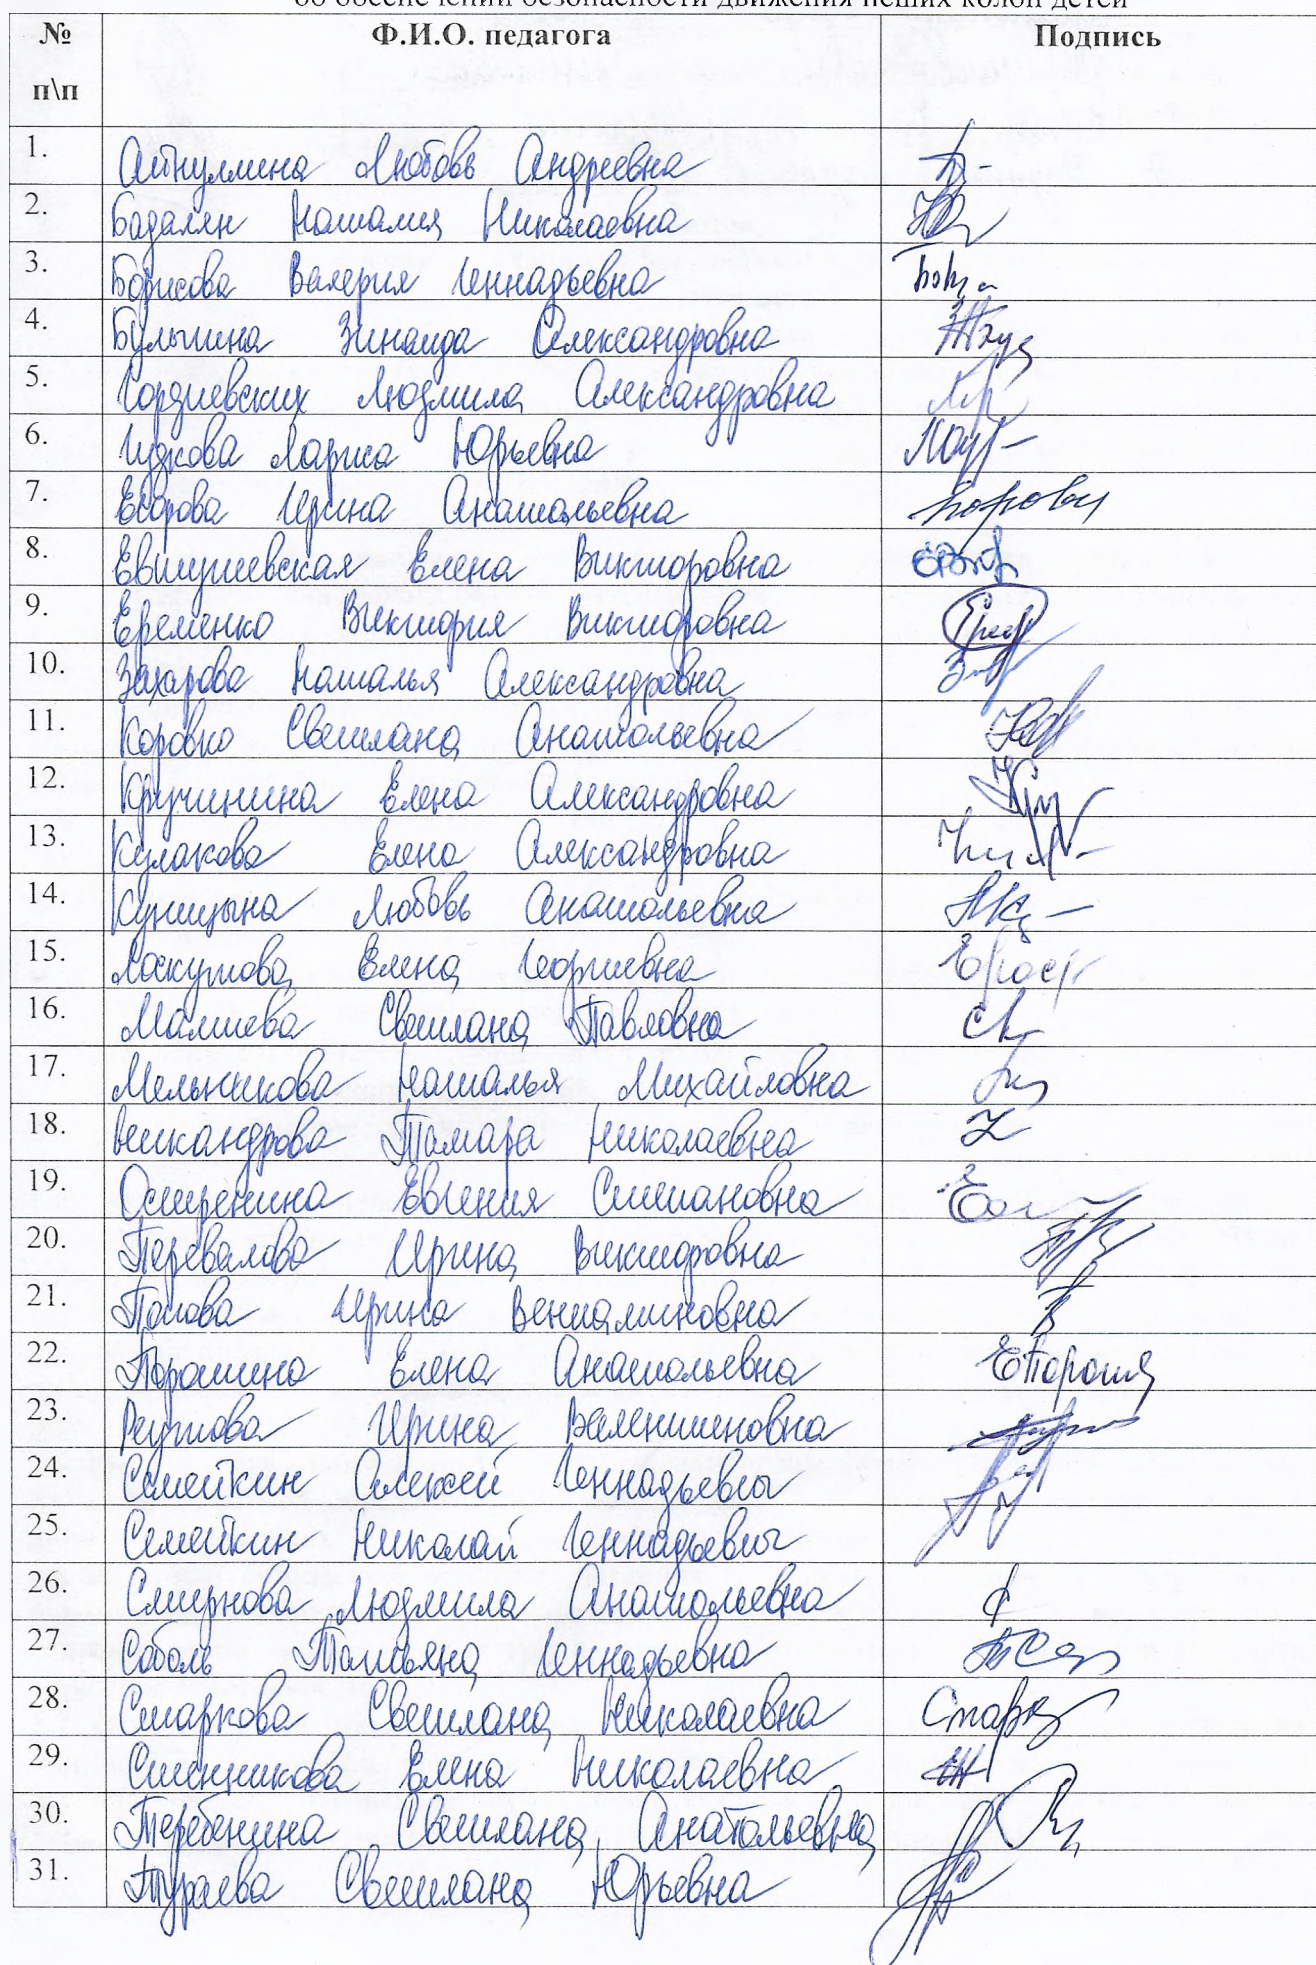 об обеспечении безопасности движения пеших колон детей
№ п\п Ф.И.О. педагога Подпись
1. Айткуллина Любовь Андреевна
2. Бадалян Наталия Николаевна
3. Борисова Валерия Геннадьевна
4. Булыгина Зинаида Александровна
5. Гордиевских Людмила Александровна
6. Гудкова Лариса Юрьевна
7. Егорова Ирина Анатольевна
8. Евтушевская Елена Викторовна
9. Еременко Виктория Викторовна
10. Захарова Наталья Александровна
11. Коровко Светлана Анатольевна
12. Кручинина Елена Александровна
13. Кулакова Елена Александровна
14. Куницына Любовь Анатольевна
15. Лоскутова Елена Георгиевна
16. Малиева Светлана Павловна
17. Мельникова Наталья Михайловна
18. Никандрова Тамара Николаевна
19. Евгения Степановна
20. Перевалова Ирина Викторовна
21. Попова Ирина Вениаминовна
22. Порошина Елена Анатольевна
23. Реутова Ирина Валентиновна
24. Семейкин Алексей Геннадьевич
25. Семейкин Николай Геннадьевич
26. Смирнова Людмила Анатольевна
27. Соболь Татьяна Геннадьевна
28. Старкова Светлана Николаевна
29. Стенникова Елена Николаевна
30. Теребенина Светлана Анатольевна
31. Тураева Светлана Юрьевна